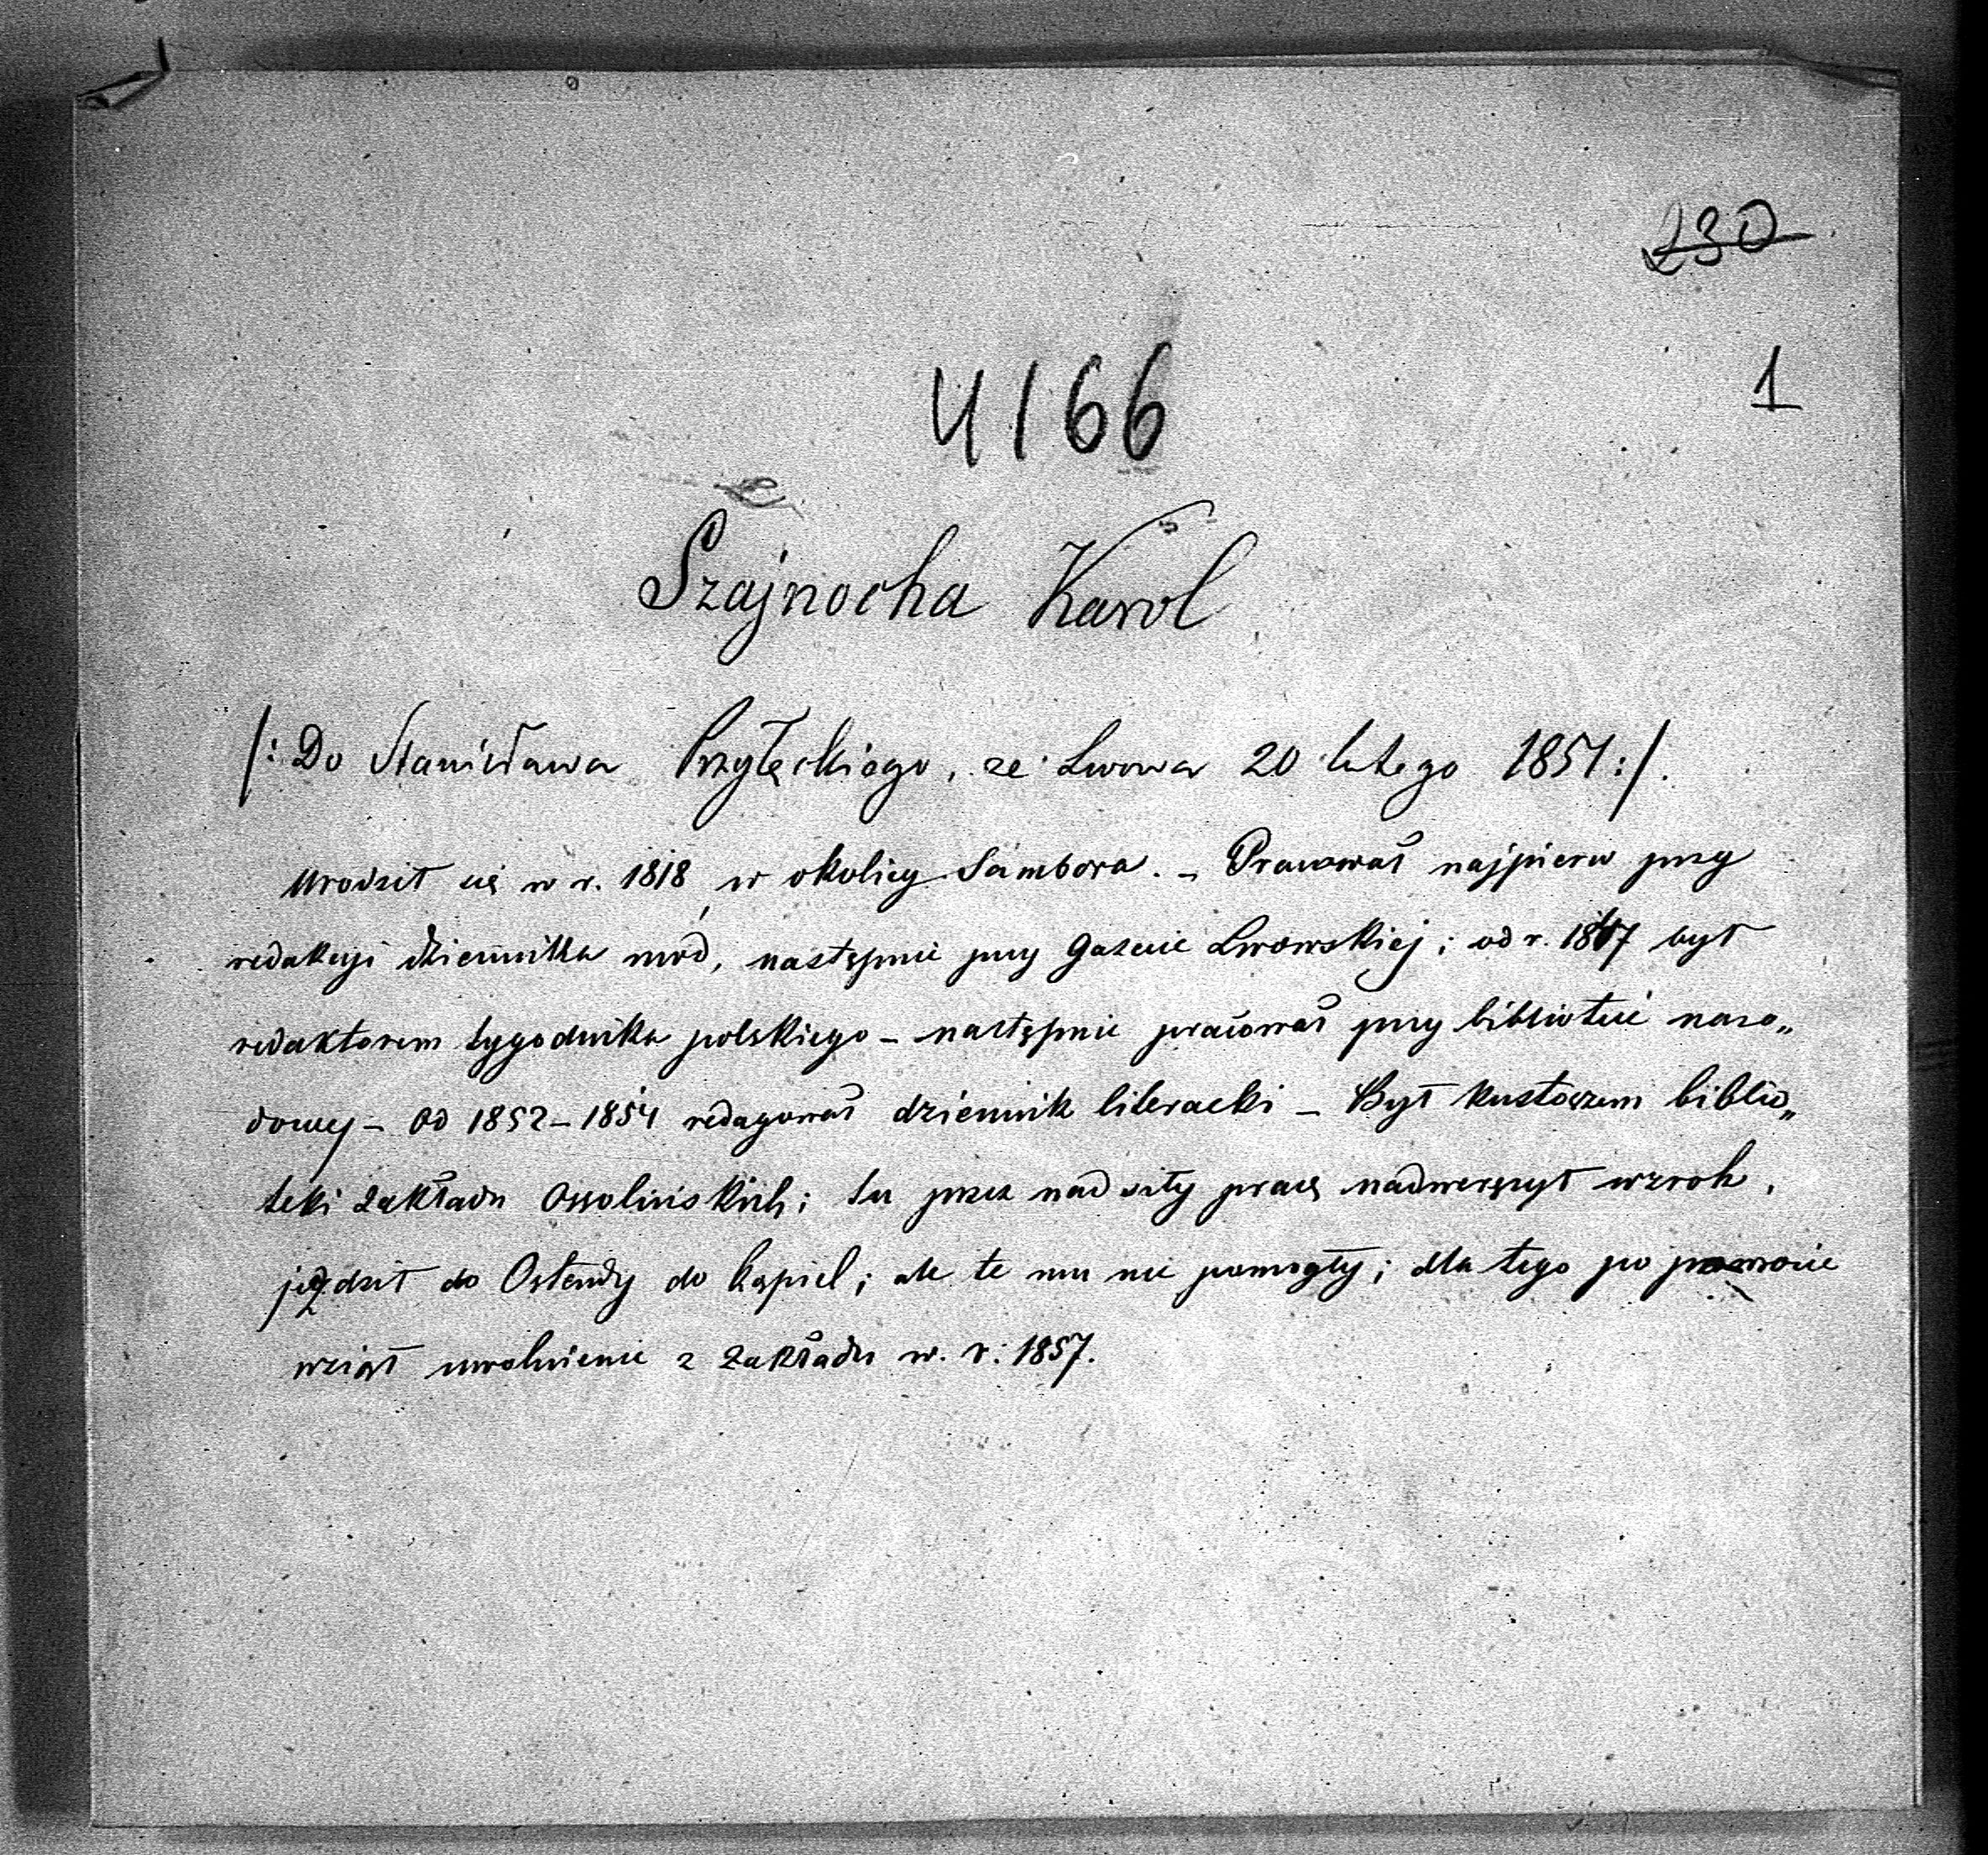 230
1
4166
Szajnocha Karol
/: Do Stanisława Przyłęckiego, ze Lwowa 20 lutego 1851 :/.
Urodził się w r. 1818 w okolicy Sambora. – Pracował najpierw przy
redakcyi dziennika mód, następnie przy Gazecie Lwowskiej; od r. 1847 był
redaktorem tygodnika polskiego – następnie pracował przy bibliotece naro„
dowej – Od 1852–1854 redagował dziennik literacki – Był kustoszem biblio„
teki zakładu Ossolińskich; tu przez nad siły pracę nadwerężył wzrok,
jeździł do Ostendy do kąpiel; ale te mu nie pomogły; dla tego po powrocie
wziął uwolnienie z zakładu w. r. 1857.